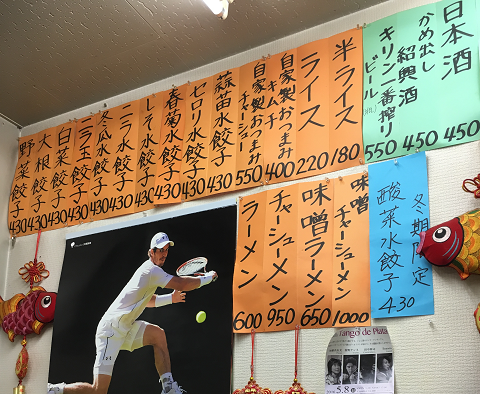 日本酒 450
かめ出し紹興酒 450
キリン一番搾りビール 550
半ライス 180
ライス 220
自家製おつまみキムチ 400
自家製おつまみチャーシュー 550
蒜苗水餃子 430
セロリ水餃子 430
春菊水餃子 430
しそ水餃子 430
ニラ水餃子 430
冬瓜水餃子 430
ニラ玉餃子 430
白菜餃子 430
大根餃子 430
野菜餃子 430
冬期限定
酸菜水餃子 430
味噌チャーシューメン 1000
味噌ラーメン 650
チャーシューメン 950
ラーメン 600
Tango de Plata
5.8